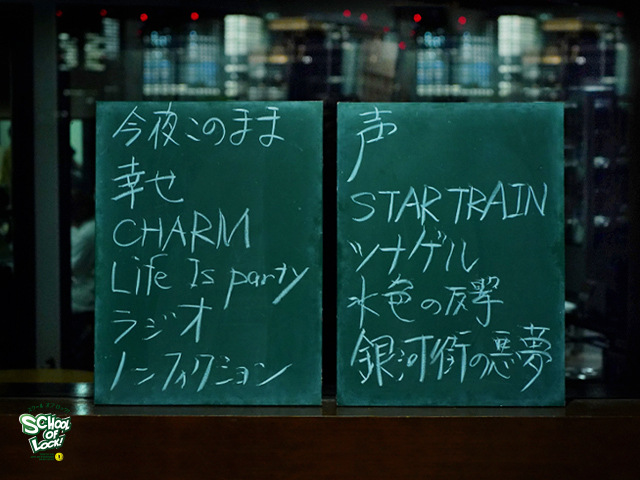 今夜このまま
幸せ
CHARM
Life Is party
ラジオ
ノンフィクション
声
STAR TRAIN
ツナゲル
水色の反撃
銀河街の悪夢
SCHOOL
OF
LOCK!